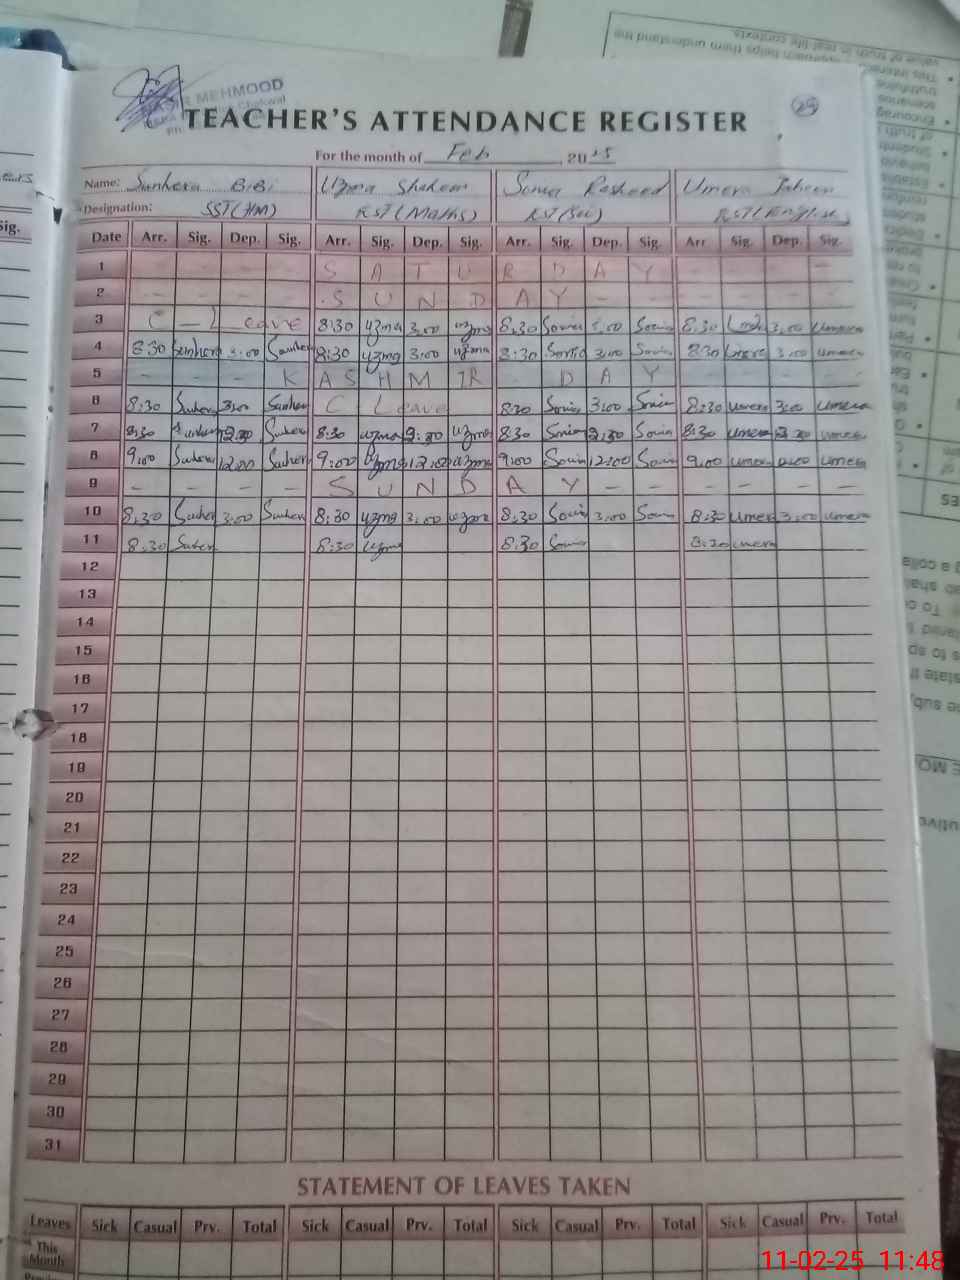 MEHMOOD
TEACHER'S ATTENDANCE REGISTER
29
For the month of Feb, 2025
Name: Sanhera BiBi Uzma Shaheen Sonia Rasheed Umera Jabeen
Designation: SST(HM) RST(Maths) RST(Sci) RST(English)
Date Arr. Sig. Dep. Sig. Arr. Sig. Dep. Sig. Arr. Sig. Dep. Sig. Arr Sig. Dep. Sig.
1 - - - - S A T U R D A Y - - - -
2 - - - - S U N D A Y - - - - -
3 C - Leave 8:30 uzma 3:00 uzma 8:30 Sonia 3:00 Sonia 8:30 Umera 3:00 Umera
4 8:30 Sanhera 3:00 Sanhera 8:30 uzma 3:00 uzma 8:30 Sonia 3:00 Sonia 8:30 Umera 3:00 umera
5 - - - K A S H M I R D A Y
6 8:30 Sanhera 3:00 Sanhera C Leave 8:30 Sonia 3:00 Sonia 8:30 umera 3:00 umera
7 8:30 Sanhera 12:30 Sanhera 8:30 uzma 12:30 uzma 8:30 Sonia 12:30 Sonia 8:30 umera 12:30 umera
8 9:00 Sanhera 12:00 Sanhera 9:00 uzma 12:00 uzma 9:00 Sonia 12:00 Sonia 9:00 umera 12:00 umera
9 - - - - S U N D A Y - - - - -
10 8:30 Sanhera 3:00 Sanhera 8:30 uzma 3:00 uzma 8:30 Sonia 3:00 Sonia 8:30 umera 3:00 umera
11 8:30 Sanhera 8:30 uzma 8:30 Sonia 8:30 umera
12
13
14
15
16
17
18
19
20
21
22
23
24
25
26
27
28
29
30
31
STATEMENT OF LEAVES TAKEN
Leaves Sick Casual Prv. Total Sick Casual Prv. Total Sick Casual Prv. Total Sick Casual Prv. Total
This
Month
11-02-25 11:48